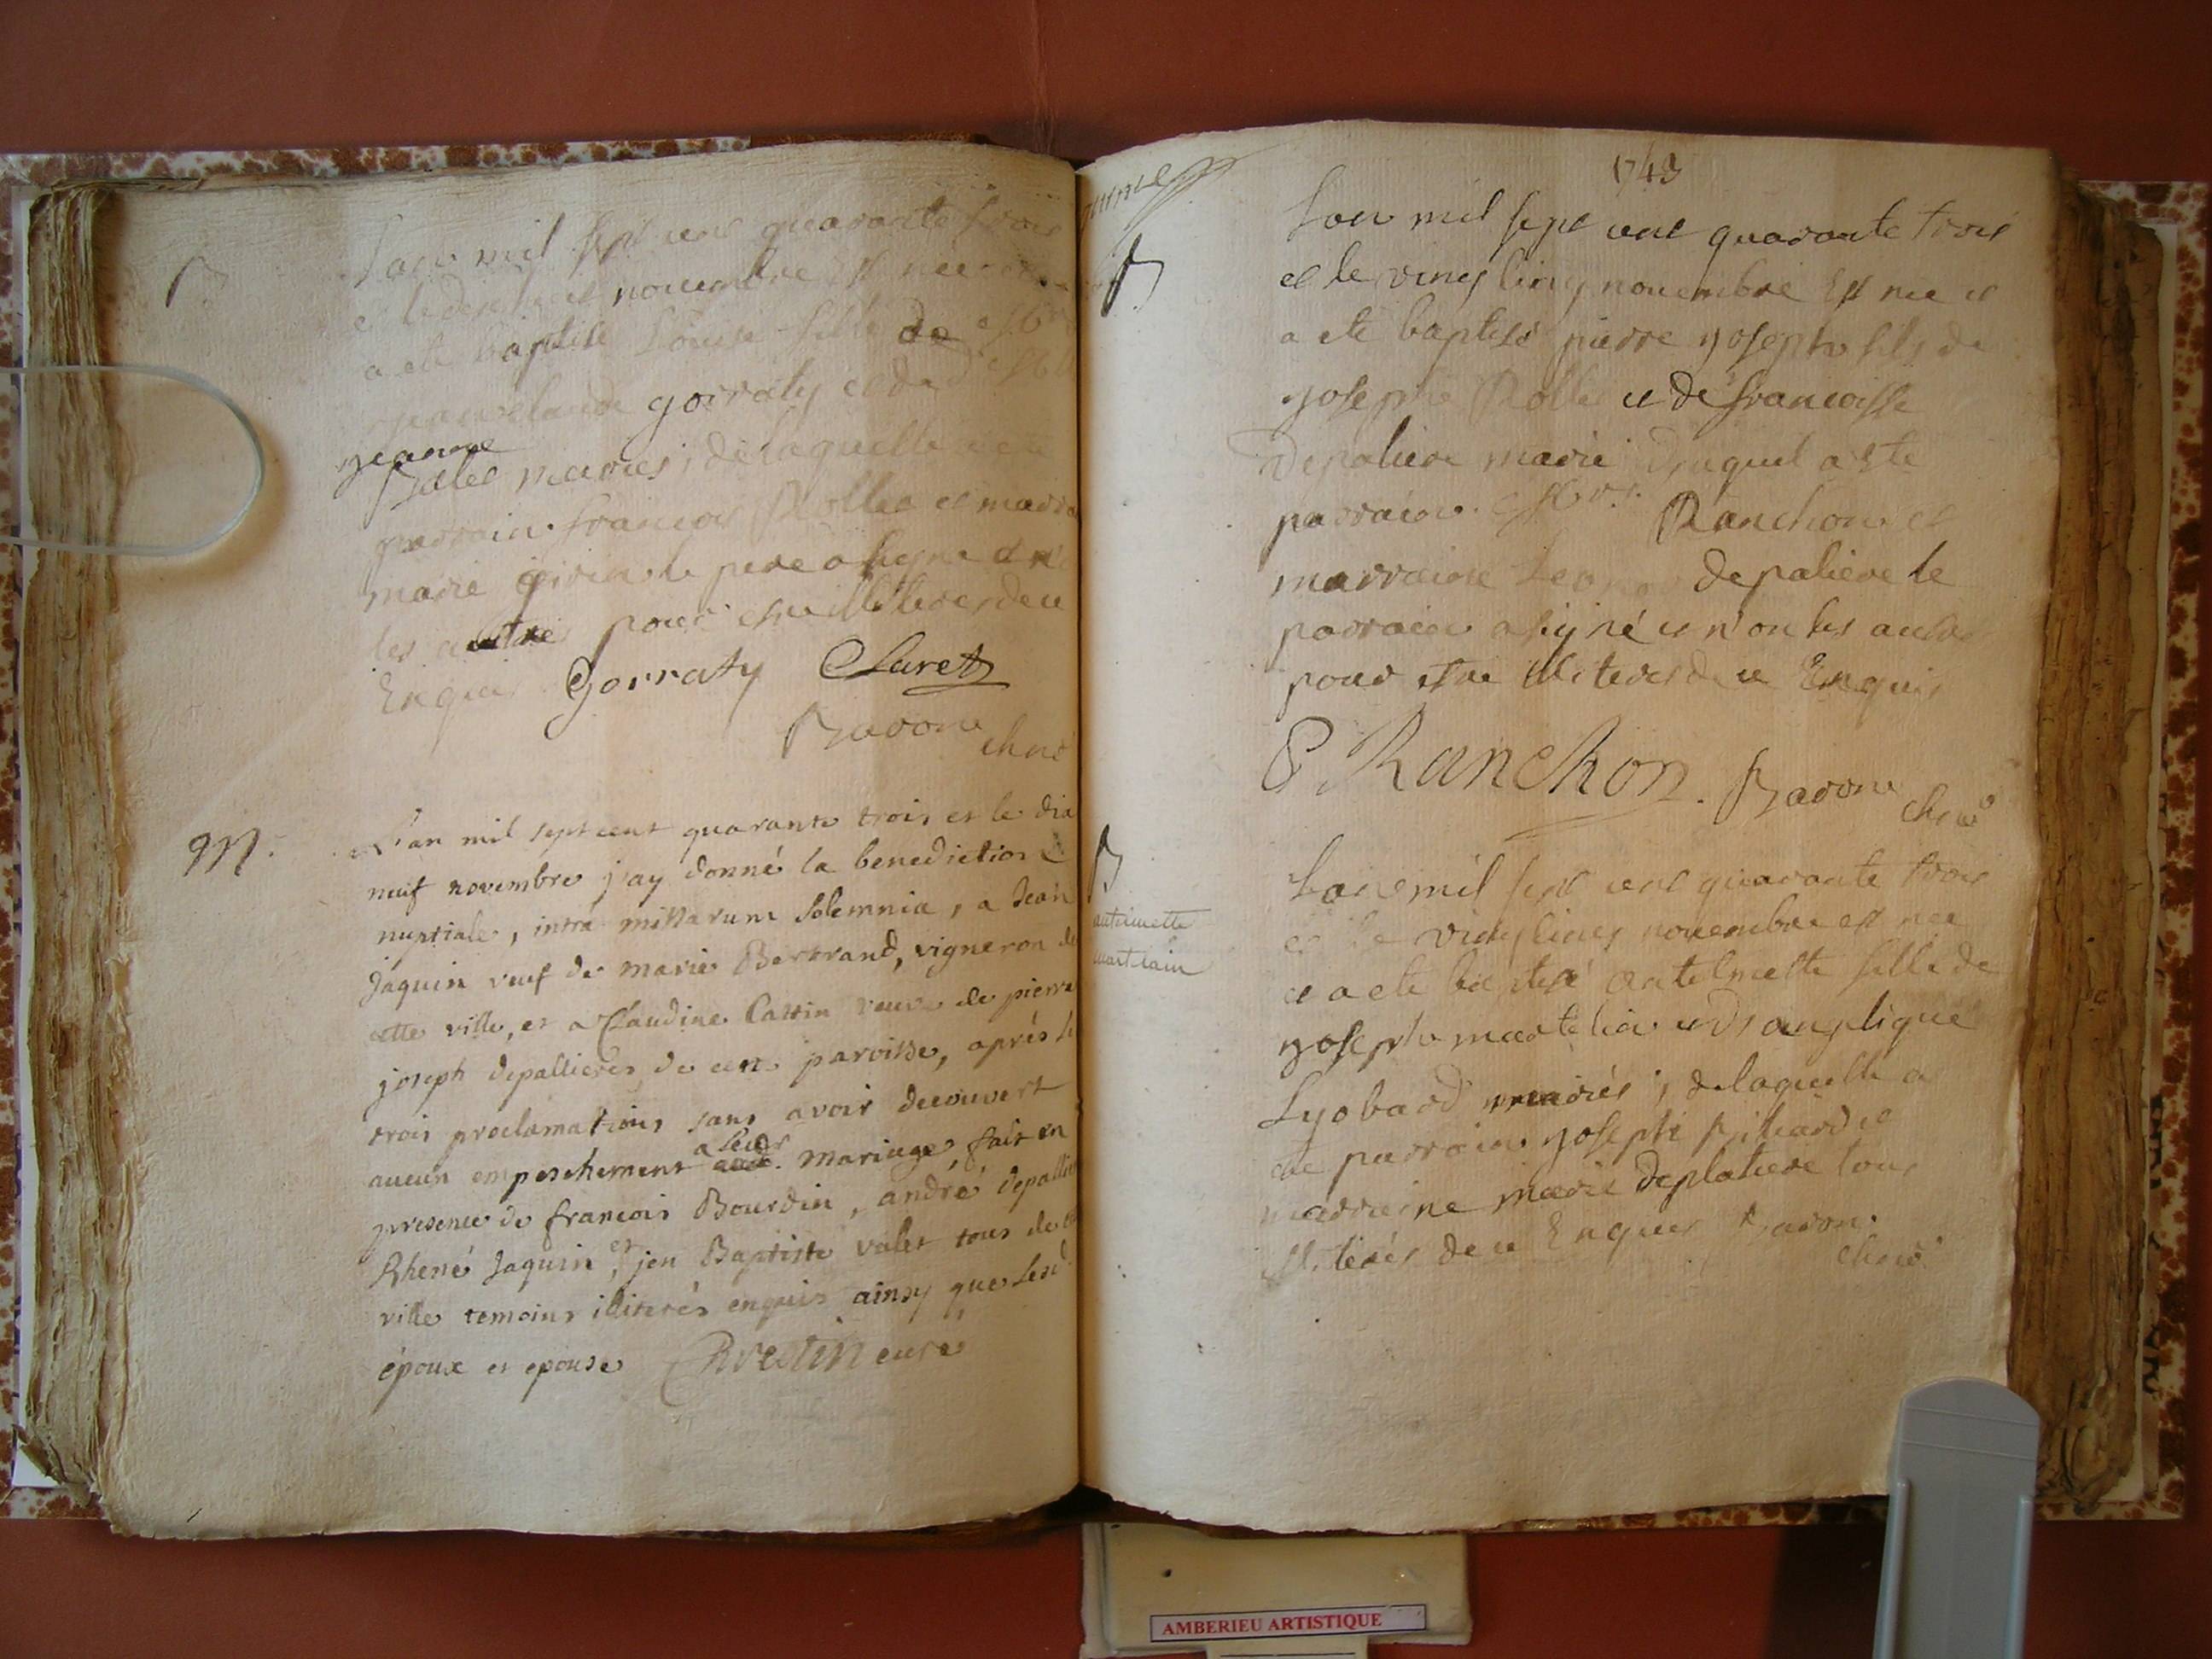 B
Lan mil sept cent quarante trois
et le dixhuit novembre est nee et
a ete baptisé Louise fille de
jean claude gorraty et de
jeanne
mariés, de laquelle a ete
parrain francois Rollet et marr
marie le pere a signe et n
les autres pour estre illiteres de ce
Enquis Gorraty Claret
Baron
M.
L'an mil sept cent quarante trois et le dix
neuf novembre j'ay donné la benediction
nuptiale, intra missarum solemnia, a Jean
Jaquin veuf de marie Bertrand, vigneron de
cette ville, et a Claudine Cattin veuve de pierre
joseph depallieres de cette paroisse, aprés les
trois proclamations sans avoir decouvert
a leur
aucun empeschement aud. mariage, fait en
presence de francois Bourdin, andré depallie
Rhené Jaquin, et jen Baptiste valet tous de
ville temoins illiterés enquis ainsy que lesd.
époux et epouse Brestin curé
1743
B
Lan mil sept cent quarante trois
et le vingt cinq novembre Est nee et
a ete baptisé pierre joseph fils de
joseph Rollet et de francoisse
Depaliere marié duquel a Este
parrain Ranchon et
marraine depaliere le
parrain a signé et n'on les autres
pour estre illiteres de ce Enquis
P. Ranchon. Baron
B
antelmette
martelain
Lan mil sept cent quarante trois
et le vingt cinq novembre est nee
et a ete baptisé Antelmette fille de
joseph martelin et d'anglique
Lyobard mariés, de laquelle a
ete parrain joseph Richard et
marraine marie deplatiere tous
illiterés de ce Enquis Baron.
AMBERIEU ARTISTIQUE